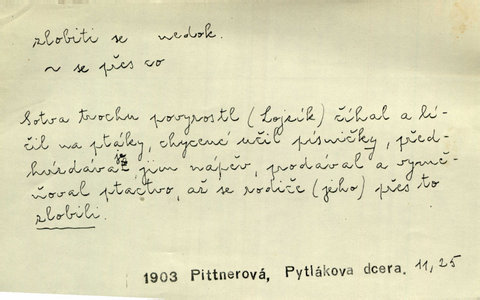 zlobiti se nedok.
~ se přes co
Sotva trochu povyrostl (Lojsík) číhal a lí-
čil na ptáky, chycené učil písničky, před-
hvízdával jim nápěv, prodával a vymě-
ňoval ptactvo, až se rodiče (jeho) přes to
zlobili.
1903 Pittnerová, Pytlákova dcera. 11, 25